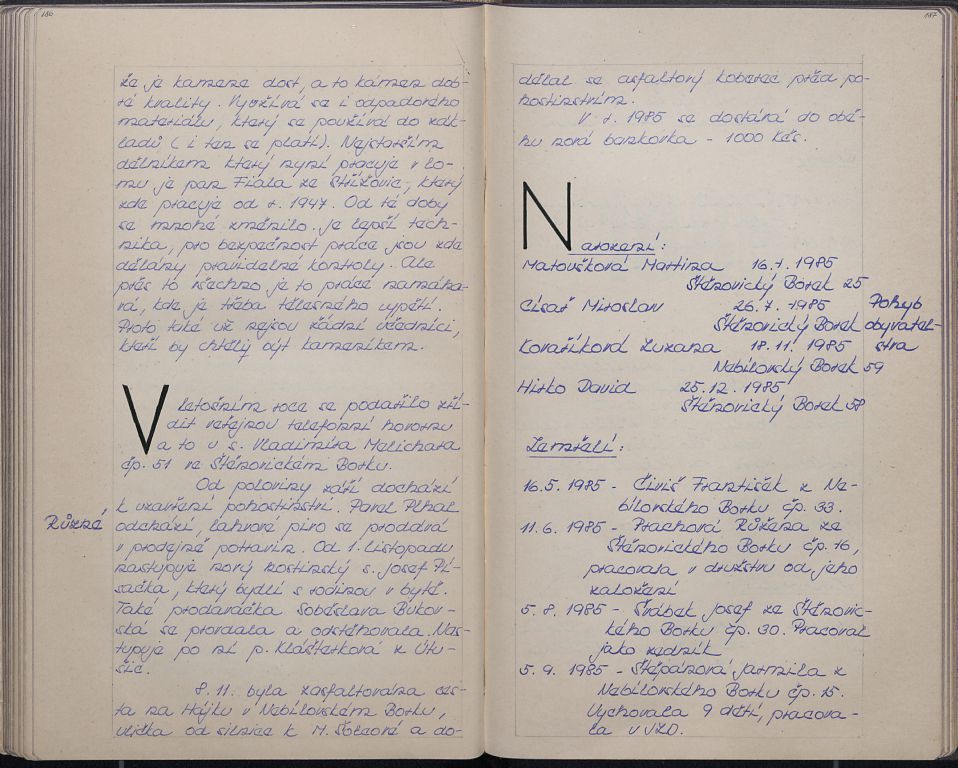 186
že je kamene dost, a to kámen dob-
ré kvality. Využívá se i odpadového
materiálu, který se používá do zák-
ladů (i ten se platí). Nejstarším
dělníkem který nyní pracuje v lo-
mu je pan Fiala ze Střížovic, který
zde pracuje od r. 1947. Od té doby
se mnohé změnilo. Je lepší tech-
nika, pro bezpečnost práce jsou zde
dělány pravidelné kontroly. Ale
přes to všechno je to práce namáha-
vá, kde je třeba tělesného vypětí.
Proto také už nejsou žádní učedníci,
kteří by chtěly být kameníkem.
V letošním roce se podařilo zří-
dit veřejnou telefonní hovornu
a to u s. Vladimíra Melichara
čp. 51 ve Štěnovickém Borku.
Od poloviny září dochází
k uzavření pohostinství. Pavel Plhal
Různé
odchází, lahvové pivo se prodává
v prodejně potravin. Od 1. listopadu
nastupuje nový hostinský s. Josef Pí-
sačka, který bydlí s rodinou v bytě.
Také prodavačka Soběslava Bukov-
ská se provdala a odstěhovala. Nas-
tupuje po ní p. Klášterková z Útu-
šic.
8. 11. byla zasfaltována ces-
ta na Hájku v Nebílovském Borku,
ulička od silnice k M. Šolcové a do-
187
dělal se asfaltový koberec před po-
hostinstvím.
V r. 1985 se dostává do obě-
hu nová bankovka - 1000 Kčs.
Narození:
Matoušková Martina 16. 1. 1985
Štěnovický Borek 25
Císař Miroslav 26. 7. 1985
Štěnovický Borek
Pohyb
obyvatel-
stva
Kovaříková Zuzana 18. 11. 1985
Nebílovský Borek 59
Hirko David 25. 12. 1985
Štěnovický Borek 58
Zemřelí:
16. 5. 1985 - Čiviš František z Ne-
bílovského Borku čp. 33.
11. 6. 1985 - Prachová Růžena ze
Štěnovického Borku čp. 16,
pracovala v družstvu od jeho
založení
5. 8. 1985 - Švábek Josef ze Štěnovic-
kého Borku čp. 30. Pracoval
jako zedník
5. 9. 1985 - Štěpánová Jarmila z
Nebílovského Borku čp. 15.
Vychovala 9 dětí, pracova-
la v JZD.